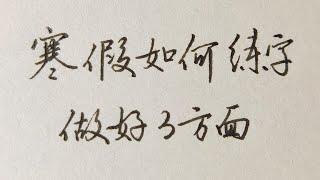 寒假如何练字
做好3方面